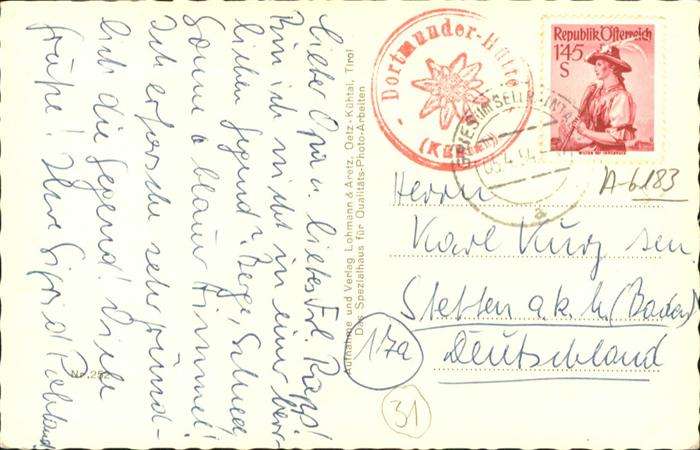 Lieber Opa u. liebes Frl. Rapp!
Bin ich nicht in einer herr-
lichen Gegend? Berge, Schnee,
Sonne u. blauer Himmel!
Ich erforsche sehr gründ-
lich die Gegend! Viele
Grüße! Ihre Sigrid
Nr. 252
Aufnahme und Verlag Lohmann & Aretz, Oetz-Kühtai, Tirol
Das Spezialhaus für Qualitäts-Photo-Arbeiten
- Dortmunder-Hütte -
(Kühtai)
Republik Österreich
1'45
S
A-6183
Herrn
Karl Kurz sen.
Stetten a.k.M. (Baden)
Deutschland
17a
31